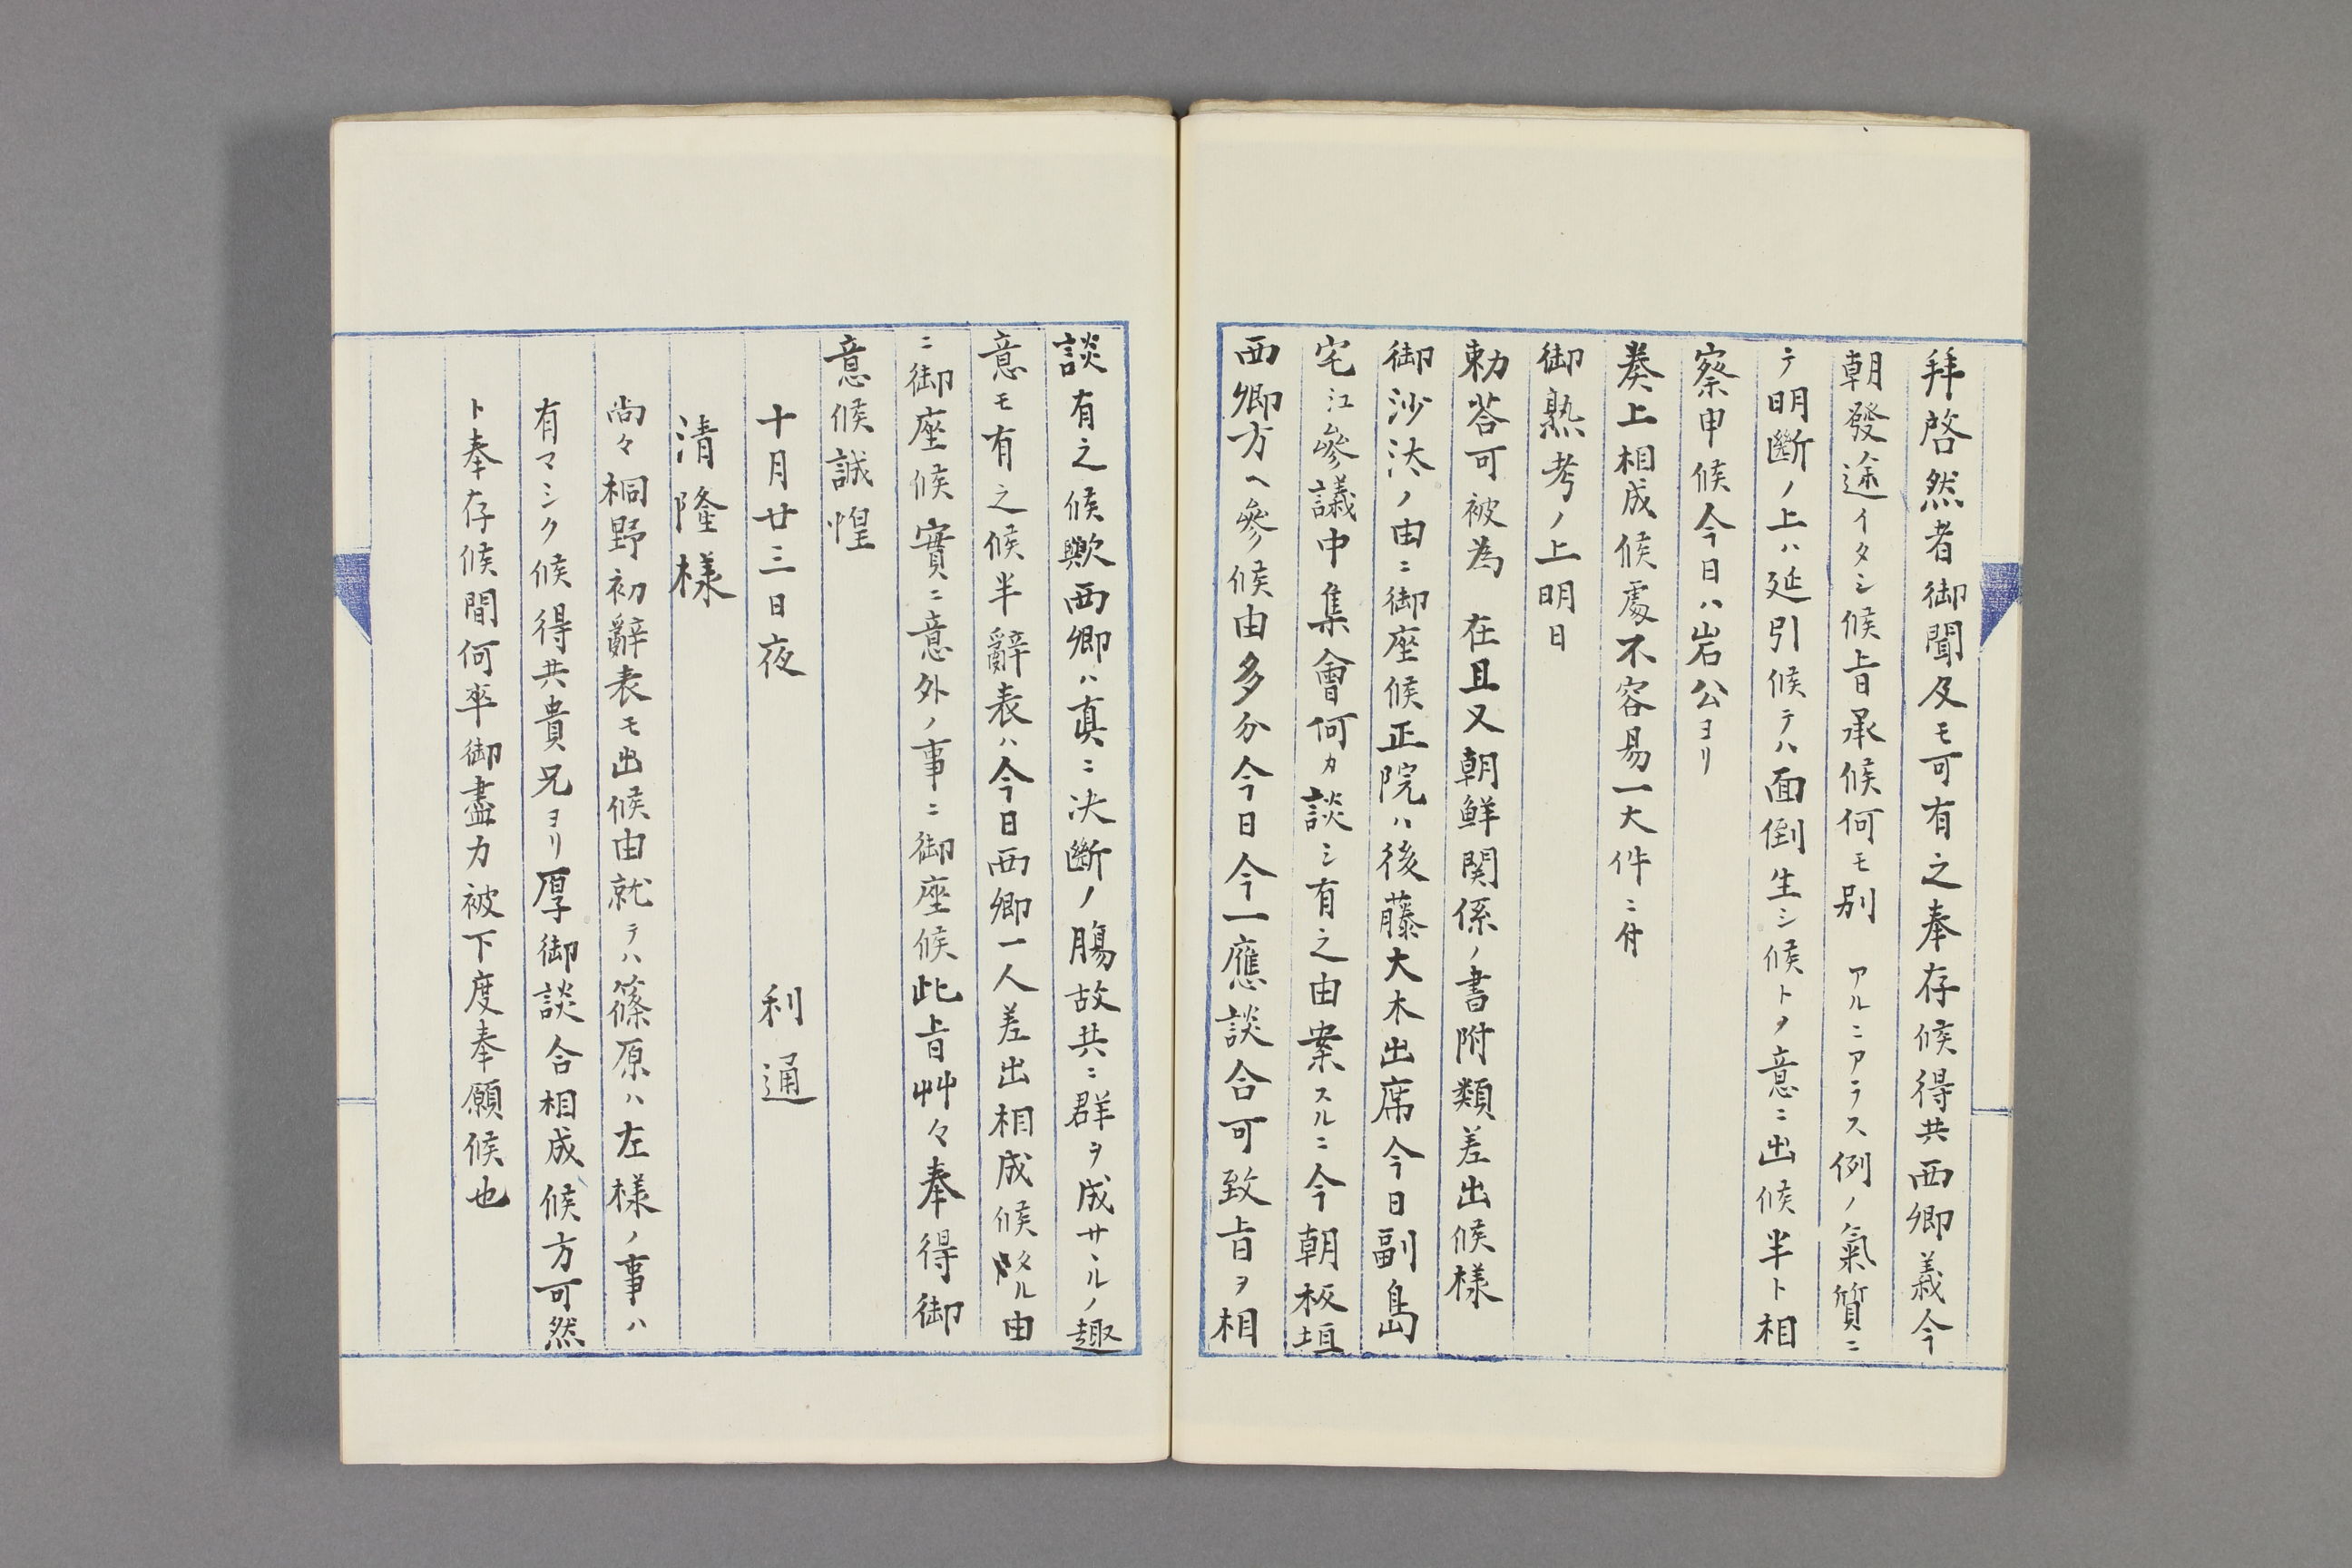 拜啓然者御聞及モ可有之奉存候得共西郷義今
朝發途イタシ候旨承候何モ別　アルニアラス例ノ氣質ニ
テ明斷ノ上ハ延引候テハ面倒生シ候トヲ意ニ出候半ト相
察申候今日ハ岩公ヨリ
奏上相成候處不容易一大件ニ付
御熟考ノ上明日
勅荅可被為　在且又朝鮮関係ノ書附類差出候樣
御沙汰ノ由ニ御座候正院ハ後藤大木出席今日副島
宅江參議中集會何カ談シ有之由案スルニ今朝板垣
西郷方ヘ參候由多分今日今一應談合可致旨ヲ相
談有之候歟西郷ハ真ニ决斷ノ膓故共ニ群ヲ成サヽルノ趣
意モ有之候半辭表ハ今日西郷一人差出相成候タル由
ニ御座候實ニ意外ノ事ニ御座候此旨艸々奉得御
意候誠惶
十月廿三日夜　利通
清隆樣
尚々桐野初辭表モ出候由就テハ篠原ハ左樣ノ事ハ
有マシク候得共貴兄ヨリ厚御談合相成候方可然
ト奉存候間何卒御盡力被下度奉願候也